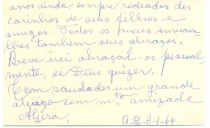 anos ainda sempre rodeados dos
carinhos de seus filhos e
amigos. Todos os meus enviam
lhes tambem seus abraços.
Breve irei abraçal-os pessoal
mente, se Deus quizer.
Com saudades um grande
abraço com mta amizade
Alzira.